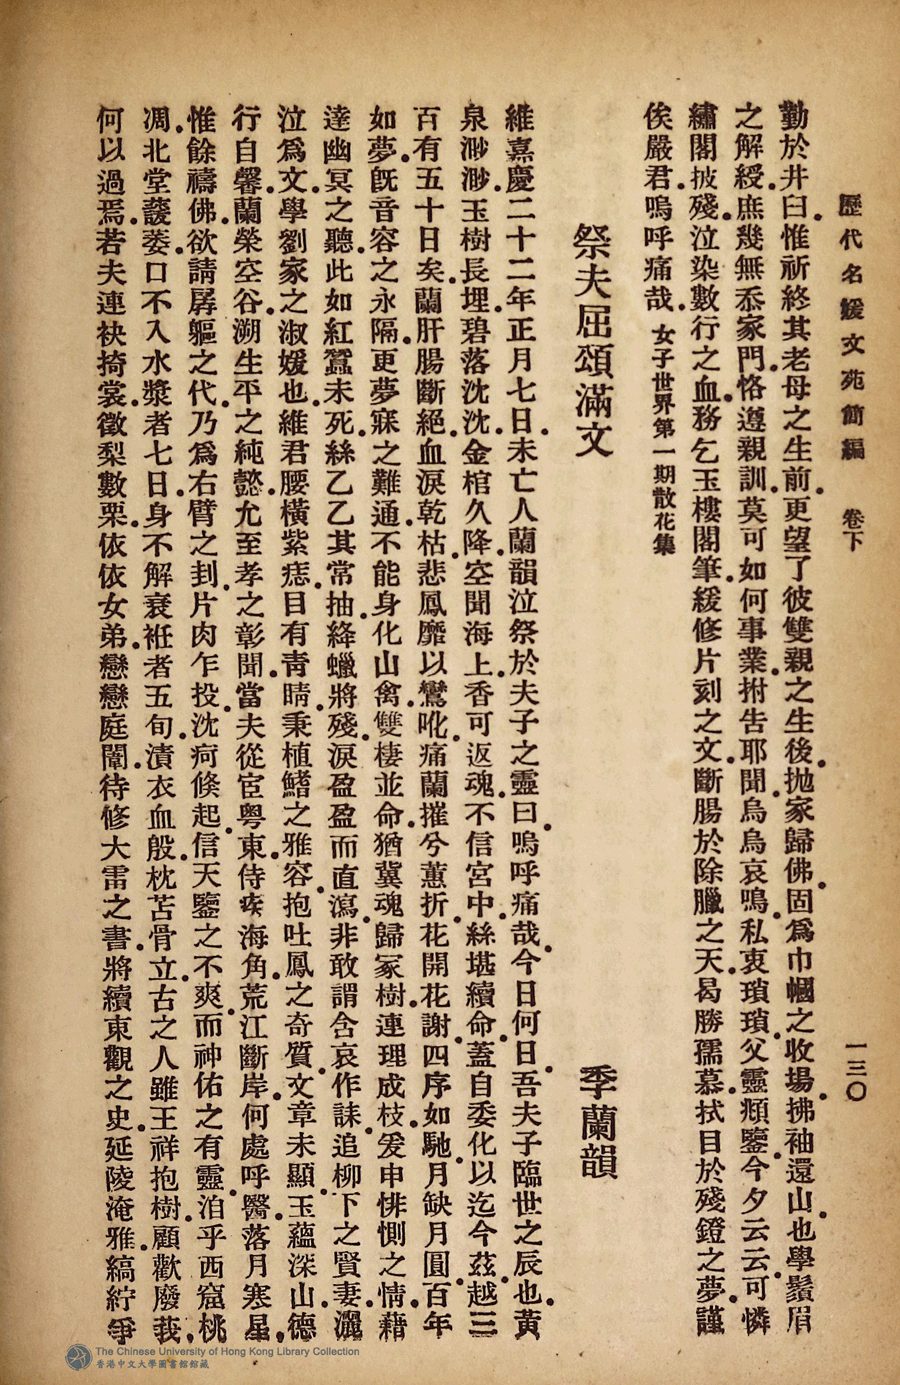 歷代名媛文苑簡編　卷下　一三〇
勤於井臼。惟祈終其老母之生前。更望了彼雙親之生後。拋家歸佛。固爲巾幗之收場。拂袖還山。也學鬚眉
之解綬。庶幾無忝家門。恪遵親訓。莫可如何事業。拊告耶聞。烏烏哀鳴。私衷瑣瑣。父靈頫鑒。今夕云云。可憐
繡閣披殘。泣染數行之血。務乞玉樓閣筆。緩修片刻之文。斷腸於除臘之天。曷勝孺慕。拭目於殘鐙之夢。謹
俟嚴君。嗚呼痛哉。女子世界第一期散花集
祭夫屈頌滿文　季蘭韻
維嘉慶二十二年正月七日。未亡人蘭韻泣祭於夫子之靈曰。嗚呼痛哉。今日何日。吾夫子臨世之辰也。黃
泉渺渺。玉樹長埋。碧落沈沈。金棺久降。空聞海上。香可返魂。不信宮中。絲堪續命。蓋自委化以迄今茲。越三
百有五十日矣。蘭肝腸斷絕。血淚乾枯。悲鳳靡以鸞吪。痛蘭摧兮蕙折。花開花謝。四序如馳。月缺月圓。百年
如夢。既音容之永隔。更夢寐之難通。不能身化山禽。雙棲並命。猶冀魂歸冢樹。連理成枝。爰申悱惻之情。藉
達幽冥之聽。此如紅蠶未死。絲乙乙其常抽。絳蠟將殘。淚盈盈而直瀉。非敢謂含哀作誄。追柳下之賢妻。灑
泣爲文。學劉家之淑媛也。維君腰橫紫痣。目有青睛。秉植鰭之雅容。抱吐鳳之奇質。文章未顯。玉蘊深山。德
行自馨。蘭榮空谷。溯生平之純懿。允至孝之彰聞。當夫從宦粵東。侍疾海角。荒江斷岸。何處呼醫。落月寒星。
惟餘禱佛。欲請孱軀之代。乃爲右臂之刲。片肉乍投。沈疴倏起。信天鑒之不爽。而神佑之有靈。洎乎西窟桃
凋。北堂萲萎。口不入水漿者七日。身不解衰袵者五旬。漬衣血殷。枕苫骨立。古之人雖王祥抱樹。顧歡廢莪。
何以過焉。若夫連袂掎裳。徵梨數栗。依依女弟。戀戀庭闈。待修大雷之書。將續東觀之史。延陵淹雅。縞紵爭
The Chinese University of Hong Kong Library Collection
香港中文大學圖書館館藏